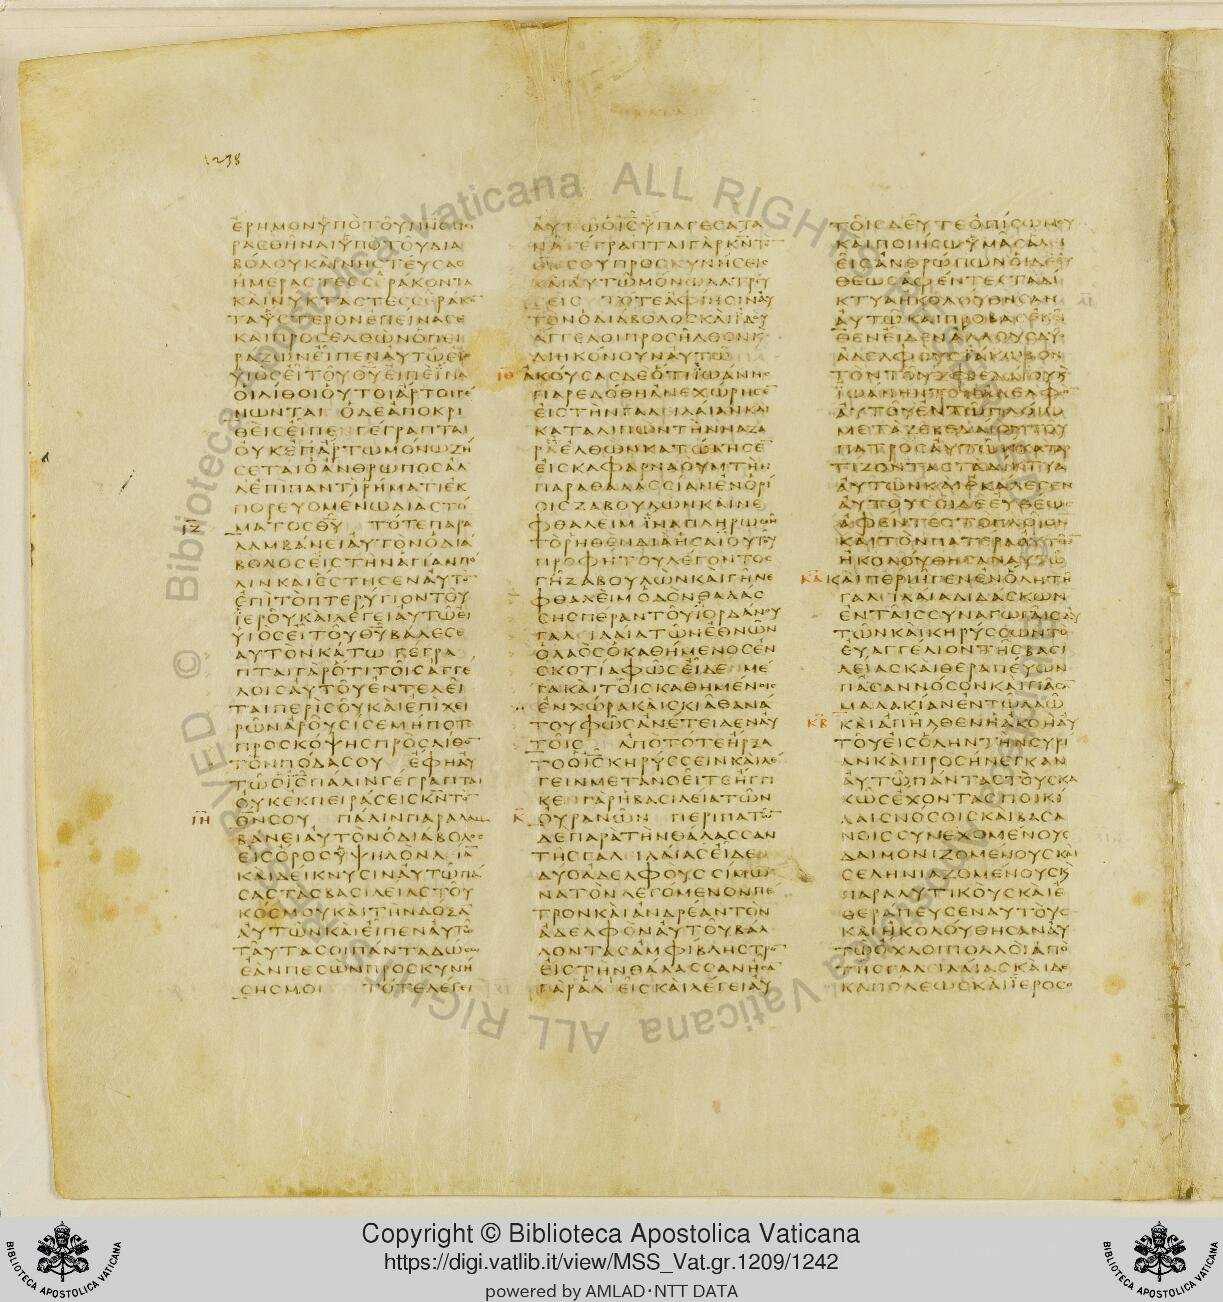 1238
ΕΡΗΜΟΝΥΠΟΤΟΥΠΝΣΠΙ
ΡΑΣΘΗΝΑΙΥΠΟΤΟΥΔΙΑ
ΒΟΛΟΥΚΑΙΝΗΣΤΕΥΣΑΣ
ΗΜΕΡΑΣΤΕΣΣΕΡΑΚΟΝΤΑ
ΚΑΙΝΥΚΤΑΣΤΕΣΣΕΡΑΚΟ
ΤΑΥΣΤΕΡΟΝΕΠΕΙΝΑΣΕ
ΚΑΙΠΡΟΣΕΛΘΩΝΟΠΕΙ
ΡΑΖΩΝΕΙΠΕΝΑΥΤΩΕΙ
ΥΙΟΣΕΙΤΟΥΘΥΕΙΠΕΙΝΑ
ΟΙΛΙΘΟΙΟΥΤΟΙΑΡΤΟΙΓΕ
ΝΩΝΤΑΙ ΟΔΕΑΠΟΚΡΙ
ΘΕΙΣΕΙΠΕΝΓΕΓΡΑΠΤΑΙ
ΟΥΚΕΠΑΡΤΩΜΟΝΩΖΗ
ΣΕΤΑΙΟΑΝΘΡΩΠΟΣΑΛ
ΛΕΠΙΠΑΝΤΙΡΗΜΑΤΙΕΚ
ΠΟΡΕΥΟΜΕΝΩΔΙΑΣΤΟ
ΙΖ ΜΑΤΟΣΘΥ ΤΟΤΕΠΑΡΑ
ΛΑΜΒΑΝΕΙΑΥΤΟΝΟΔΙΑ
ΒΟΛΟΣΕΙΣΤΗΝΑΓΙΑΝΠΟ
ΛΙΝΚΑΙΕΣΤΗΣΕΝΑΥΤΟ
ΕΠΙΤΟΠΤΕΡΥΓΙΟΝΤΟΥ
ΙΕΡΟΥΚΑΙΛΕΓΕΙΑΥΤΩΕΙ
ΥΙΟΣΕΙΤΟΥΘΥΒΑΛΕΣΕ
ΑΥΤΟΝΚΑΤΩ ΓΕΓΡΑ
ΠΤΑΙΓΑΡΟΤΙΤΟΙΣΑΓΓΕ
ΛΟΙΣΑΥΤΟΥΕΝΤΕΛΕΙ
ΤΑΙΠΕΡΙΣΟΥΚΑΙΕΠΙΧΕΙ
ΡΩΝΑΡΟΥΣΙΣΕΜΗΠΟΤΕ
ΠΡΟΣΚΟΨΗΣΠΡΟΣΛΙΘΟ
ΤΟΝΠΟΔΑΣΟΥ ΕΦΗΑΥ
ΤΩΟΙΣΠΑΛΙΝΓΕΓΡΑΠΤΑΙ
ΟΥΚΕΚΠΕΙΡΑΣΕΙΣΚΝΤΟ
ΙΗ ΘΝΣΟΥ ΠΑΛΙΝΠΑΡΑΛΑΜ
ΒΑΝΕΙΑΥΤΟΝΟΔΙΑΒΟΛΟΣ
ΕΙΣΟΡΟΣΥΨΗΛΟΝΛΙΑ
ΚΑΙΔΕΙΚΝΥΣΙΝΑΥΤΩΠΑ
ΣΑΣΤΑΣΒΑΣΙΛΕΙΑΣΤΟΥ
ΚΟΣΜΟΥΚΑΙΤΗΝΔΟΞΑ
ΑΥΤΩΝΚΑΙΕΙΠΕΝΑΥΤΩ
ΤΑΥΤΑΣΟΙΠΑΝΤΑΔΩΣΩ
ΕΑΝΠΕΣΩΝΠΡΟΣΚΥΝΗ
ΣΗΣΜΟΙ ΤΟΤΕΛΕΓΕΙ
ΑΥΤΩΟΙΣΥΠΑΓΕΣΑΤΑ
ΝΑΓΕΓΡΑΠΤΑΙΓΑΡΚΝΤΟ
ΘΝΣΟΥΠΡΟΣΚΥΝΗΣΕΙΣ
ΚΑΙΑΥΤΩΜΟΝΩΛΑΤΡΕΥ
ΣΕΙΣ ΤΟΤΕΑΦΙΗΣΙΝΑΥ
ΤΟΝΟΔΙΑΒΟΛΟΣΚΑΙΙΔΟΥ
ΑΓΓΕΛΟΙΠΡΟΣΗΛΘΟΝΚ
ΔΙΗΚΟΝΟΥΝΑΥΤΩ
ΙΘ ΑΚΟΥΣΑΣΔΕΟΤΙΙΩΑΝΗΣ
ΠΑΡΕΔΟΘΗΑΝΕΧΩΡΗΣΕ
ΕΙΣΤΗΝΓΑΛΕΙΛΑΙΑΝΚΑΙ
ΚΑΤΑΛΙΠΩΝΤΗΝΝΑΖΑ
ΡΑΕΛΘΩΝΚΑΤΩΚΗΣΕ
ΕΙΣΚΑΦΑΡΝΑΟΥΜΤΗΝ
ΠΑΡΑΘΑΛΑΣΣΙΑΝΕΝΟΡΙ
ΟΙΣΖΑΒΟΥΛΩΝΚΑΙΝΕ
ΦΘΑΛΕΙΜΙΝΑΠΛΗΡΩΘΗ
ΤΟΡΗΘΕΝΔΙΑΗΣΑΙΟΥΤΟΥ
ΠΡΟΦΗΤΟΥΛΕΓΟΝΤΟΣ
ΓΗΖΑΒΟΥΛΩΝΚΑΙΓΗΝΕ
ΦΘΑΛΕΙΜΟΔΟΝΘΑΛΑΣ
ΣΗΣΠΕΡΑΝΤΟΥΙΟΡΔΑΝΟΥ
ΓΑΛΕΙΛΑΙΑΤΩΝΕΘΝΩΝ
ΟΛΑΟΣΟΚΑΘΗΜΕΝΟΣΕΝ
ΣΚΟΤΙΑΦΩΣΕΙΔΕΝΜΕ
ΓΑΚΑΙΤΟΙΣΚΑΘΗΜΕΝΟΙΣ
ΕΝΧΩΡΑΚΑΙΣΚΙΑΘΑΝΑ
ΤΟΥΦΩΣΑΝΕΤΕΙΛΕΝΑΥ
ΤΟΙΣ ΑΠΟΤΟΤΕΗΡΞΑ
ΤΟΟΙΣΚΗΡΥΣΣΕΙΝΚΑΙΛΕ
ΓΕΙΝΜΕΤΑΝΟΕΙΤΕΗΓΓΙ
ΚΕΝΓΑΡΗΒΑΣΙΛΕΙΑΤΩΝ
Κ ΟΥΡΑΝΩΝ ΠΕΡΙΠΑΤΩ
ΔΕΠΑΡΑΤΗΝΘΑΛΑΣΣΑΝ
ΤΗΣΓΑΛΕΙΛΑΙΑΣΕΙΔΕ
ΔΥΟΑΔΕΛΦΟΥΣΣΙΜΩ
ΝΑΤΟΝΛΕΓΟΜΕΝΟΝΠΕ
ΤΡΟΝΚΑΙΑΝΔΡΕΑΝΤΟΝ
ΑΔΕΛΦΟΝΑΥΤΟΥΒΑΛ
ΛΟΝΤΑΣΑΜΦΙΒΛΗΣΤΡΟ
ΕΙΣΤΗΝΘΑΛΑΣΣΑΝΗΣΑ
ΓΑΡΑΛΕΕΙΣΚΑΙΛΕΓΕΙΑΥ
ΤΟΙΣΔΕΥΤΕΟΠΙΣΩΜΟΥ
ΚΑΙΠΟΙΗΣΩΥΜΑΣΑΛΕΕΙ
ΕΙΣΑΝΘΡΩΠΩΝΟΙΔΕΕΥ
ΘΕΩΣΑΦΕΝΤΕΣΤΑΔΙ
ΚΤΥΑΗΚΟΛΟΥΘΗΣΑΝ
ΑΥΤΩΚΑΙΠΡΟΒΑΣΕΚΕΙ
ΘΕΝΕΙΔΕΝΑΛΛΟΥΣΔΥΟ
ΑΔΕΛΦΟΥΣΙΑΚΩΒΟΝ
ΤΟΝΤΟΥΖΕΒΕΔΑΙΟΥΚ
ΙΩΑΝΗΝΤΟΝΑΔΕΛΦΟ
ΑΥΤΟΥΕΝΤΩΠΛΟΙΩ
ΜΕΤΑΖΕΒΕΔΑΙΟΥΤΟΥ
ΠΑΤΡΟΣΑΥΤΩΝΚΑΤΑΡ
ΤΙΖΟΝΤΑΣΤΑΔΙΚΤΥΑ
ΑΥΤΩΝΚΑΙΕΚΑΛΕΣΕΝ
ΑΥΤΟΥΣΟΙΔΕΕΥΘΕΩΣ
ΑΦΕΝΤΕΣΤΟΠΛΟΙΟΝ
ΚΑΙΤΟΝΠΑΤΕΡΑΑΥΤΩ
ΗΚΟΛΟΥΘΗΣΑΝΑΥΤΩ
ΚΑ ΚΑΙΠΕΡΙΗΓΕΝΕΝΟΛΗΤΗ
ΓΑΛΕΙΛΑΙΑΔΙΔΑΣΚΩΝ
ΕΝΤΑΙΣΣΥΝΑΓΩΓΑΙΣΑΥ
ΤΩΝΚΑΙΚΗΡΥΣΣΩΝΤΟ
ΕΥΑΓΓΕΛΙΟΝΤΗΣΒΑΣΙ
ΛΕΙΑΣΚΑΙΘΕΡΑΠΕΥΩΝ
ΠΑΣΑΝΝΟΣΟΝΚΑΙΠΑΣΑ
ΜΑΛΑΚΙΑΝΕΝΤΩΛΑΩ
ΚΒ ΚΑΙΑΠΗΛΘΕΝΗΑΚΟΗΑΥ
ΤΟΥΕΙΣΟΛΗΝΤΗΝΣΥΡΙ
ΑΝΚΑΙΠΡΟΣΗΝΕΓΚΑΝ
ΑΥΤΩΠΑΝΤΑΣΤΟΥΣΚΑ
ΚΩΣΕΧΟΝΤΑΣΠΟΙΚΙ
ΛΑΙΣΝΟΣΟΙΣΚΑΙΒΑΣΑ
ΝΟΙΣΣΥΝΕΧΟΜΕΝΟΥΣ
ΔΑΙΜΟΝΙΖΟΜΕΝΟΥΣΚΑΙ
ΣΕΛΗΝΙΑΖΟΜΕΝΟΥΣΚ
ΠΑΡΑΛΥΤΙΚΟΥΣΚΑΙΕ
ΘΕΡΑΠΕΥΣΕΝΑΥΤΟΥΣ
ΚΑΙΗΚΟΛΟΥΘΗΣΑΝΑΥ
ΤΩΟΧΛΟΙΠΟΛΛΟΙΑΠΟ
ΤΗΣΓΑΛΕΙΛΑΙΑΣΚΑΙΔΕ
ΚΑΠΟΛΕΩΣΚΑΙΙΕΡΟΣΟ
Copyright © Biblioteca Apostolica Vaticana
https://digi.vatlib.it/view/MSS_Vat.gr.1209/1242
powered by AMLAD·NTT DATA
BIBLIOTECA APOSTOLICA VATICANA
BIBLIOTECA APOSTOLICA VATICANA